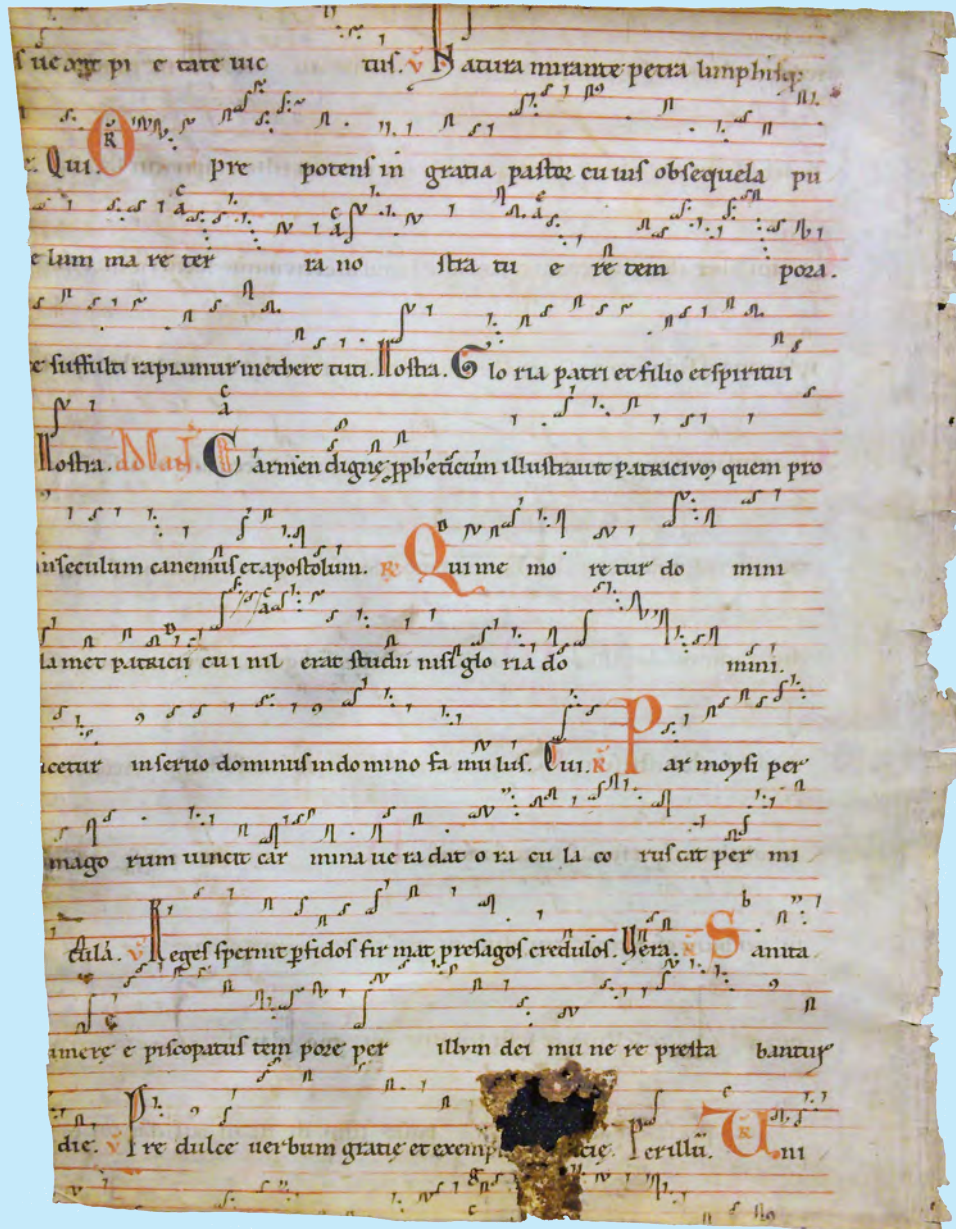 pi e tate uic tus. V Natura mirante petra limphisq;
Qui. R O pre potens in gratia pastor cuius obsequela pu
e lum ma re ter ra no stra tu e re tem pora.
suffulti rapiamur in ethere tuti. Nostra. Glo ria patri et filio et spiritui
Nostra. Carmen digne ppheticum illustrauit patricium quem pro
in seculum canemus et apostolum. R Qui me mo retur do mini
la met patricii cui nil erat studii nisi glo ria do mini.
icetur in seruo dominus in domino fa mu lus. Qui. R Par moysi per
mago rum uincit car mina ue ra dat o ra cu la co ruscat per mi
cula. V Reges spernit pfidos fir mat presagos credulos. Vera. R Sanita
amere e piscopatus tem pore per illum dei mu ne re presta bantur
die. V Pre dulce uerbum gratię et exemp cię. Per illū. R Uni